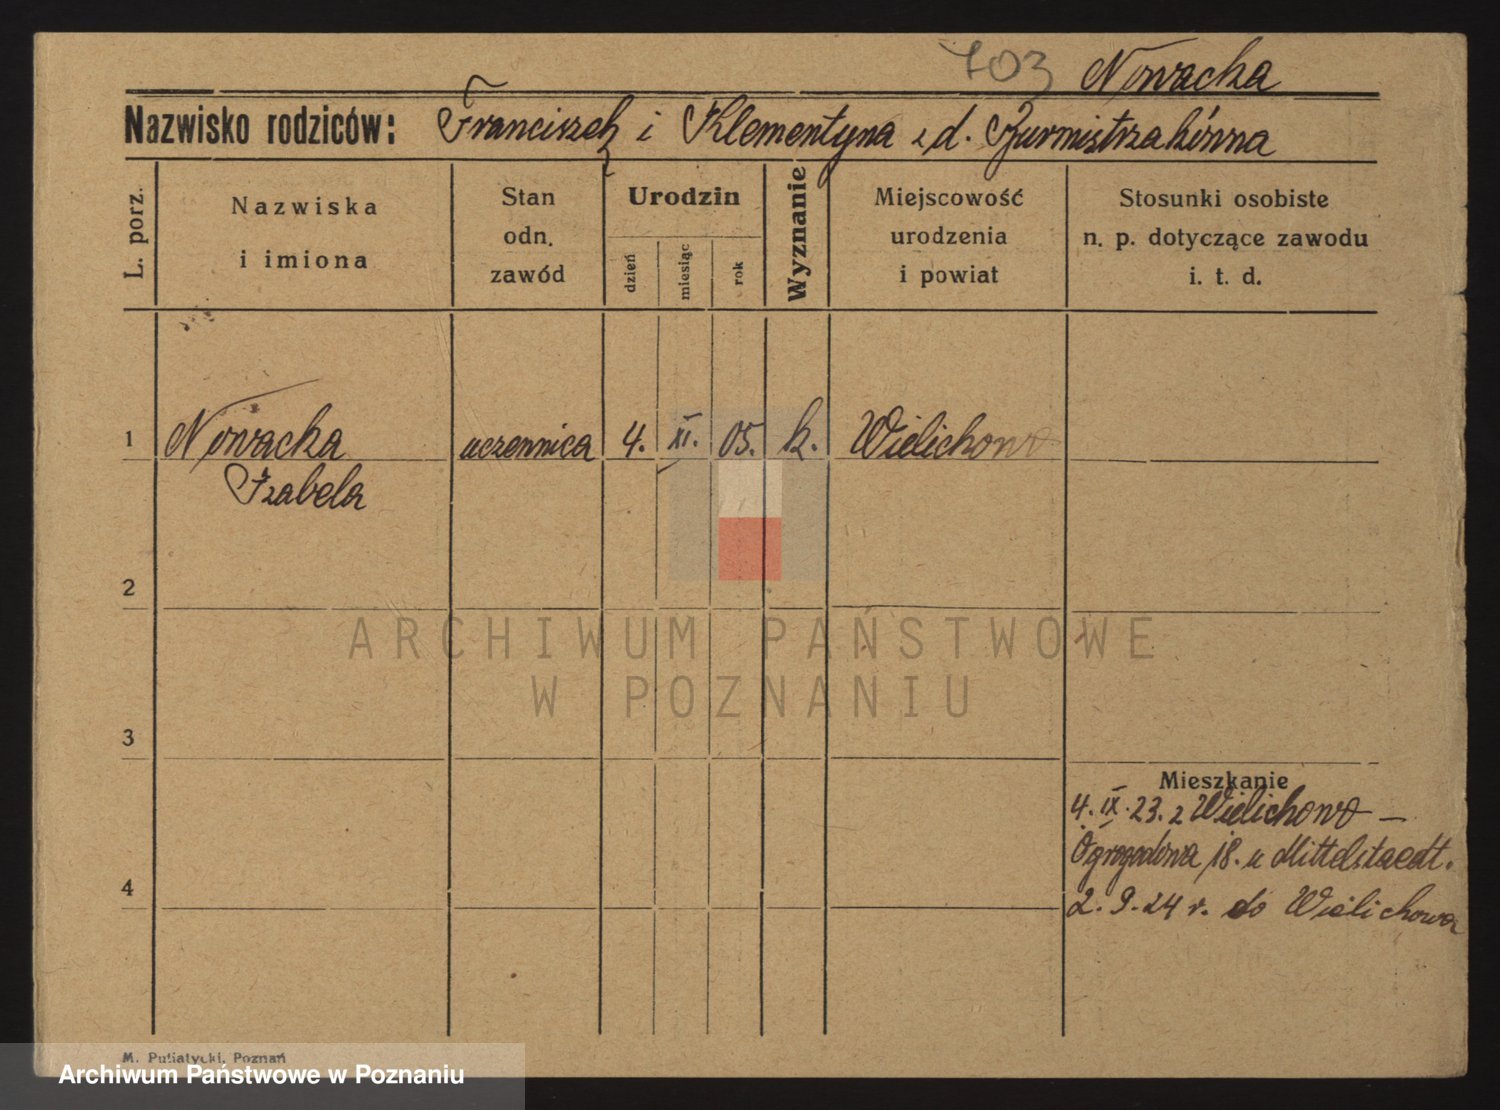 703 Nowacka
Nazwisko rodziców: Franciszek i Klementyna z d. Burmistrzakówna
L. porz.
Nazwiska
i imiona
Stan
odn.
zawód
Urodzin
dzień
miesiąc
rok
Wyznanie
Miejscowość
urodzenia
i powiat
Stosunki osobiste
n. p. dotyczące zawodu
i. t. d.
1 Nowacka uczennica 4. XI. 05. k. Wielichowo
Izabela
2
ARCHIWUM PAŃSTWOWE
W POZNANIU
3
Mieszkanie
4. IX. 23. z Wielichowo —
Ogrogodowa 18. u Mittelstaedt.
4
2. 9. 24 r. do Wielichowa
M. Putiatycki, Poznań
Archiwum Państwowe w Poznaniu